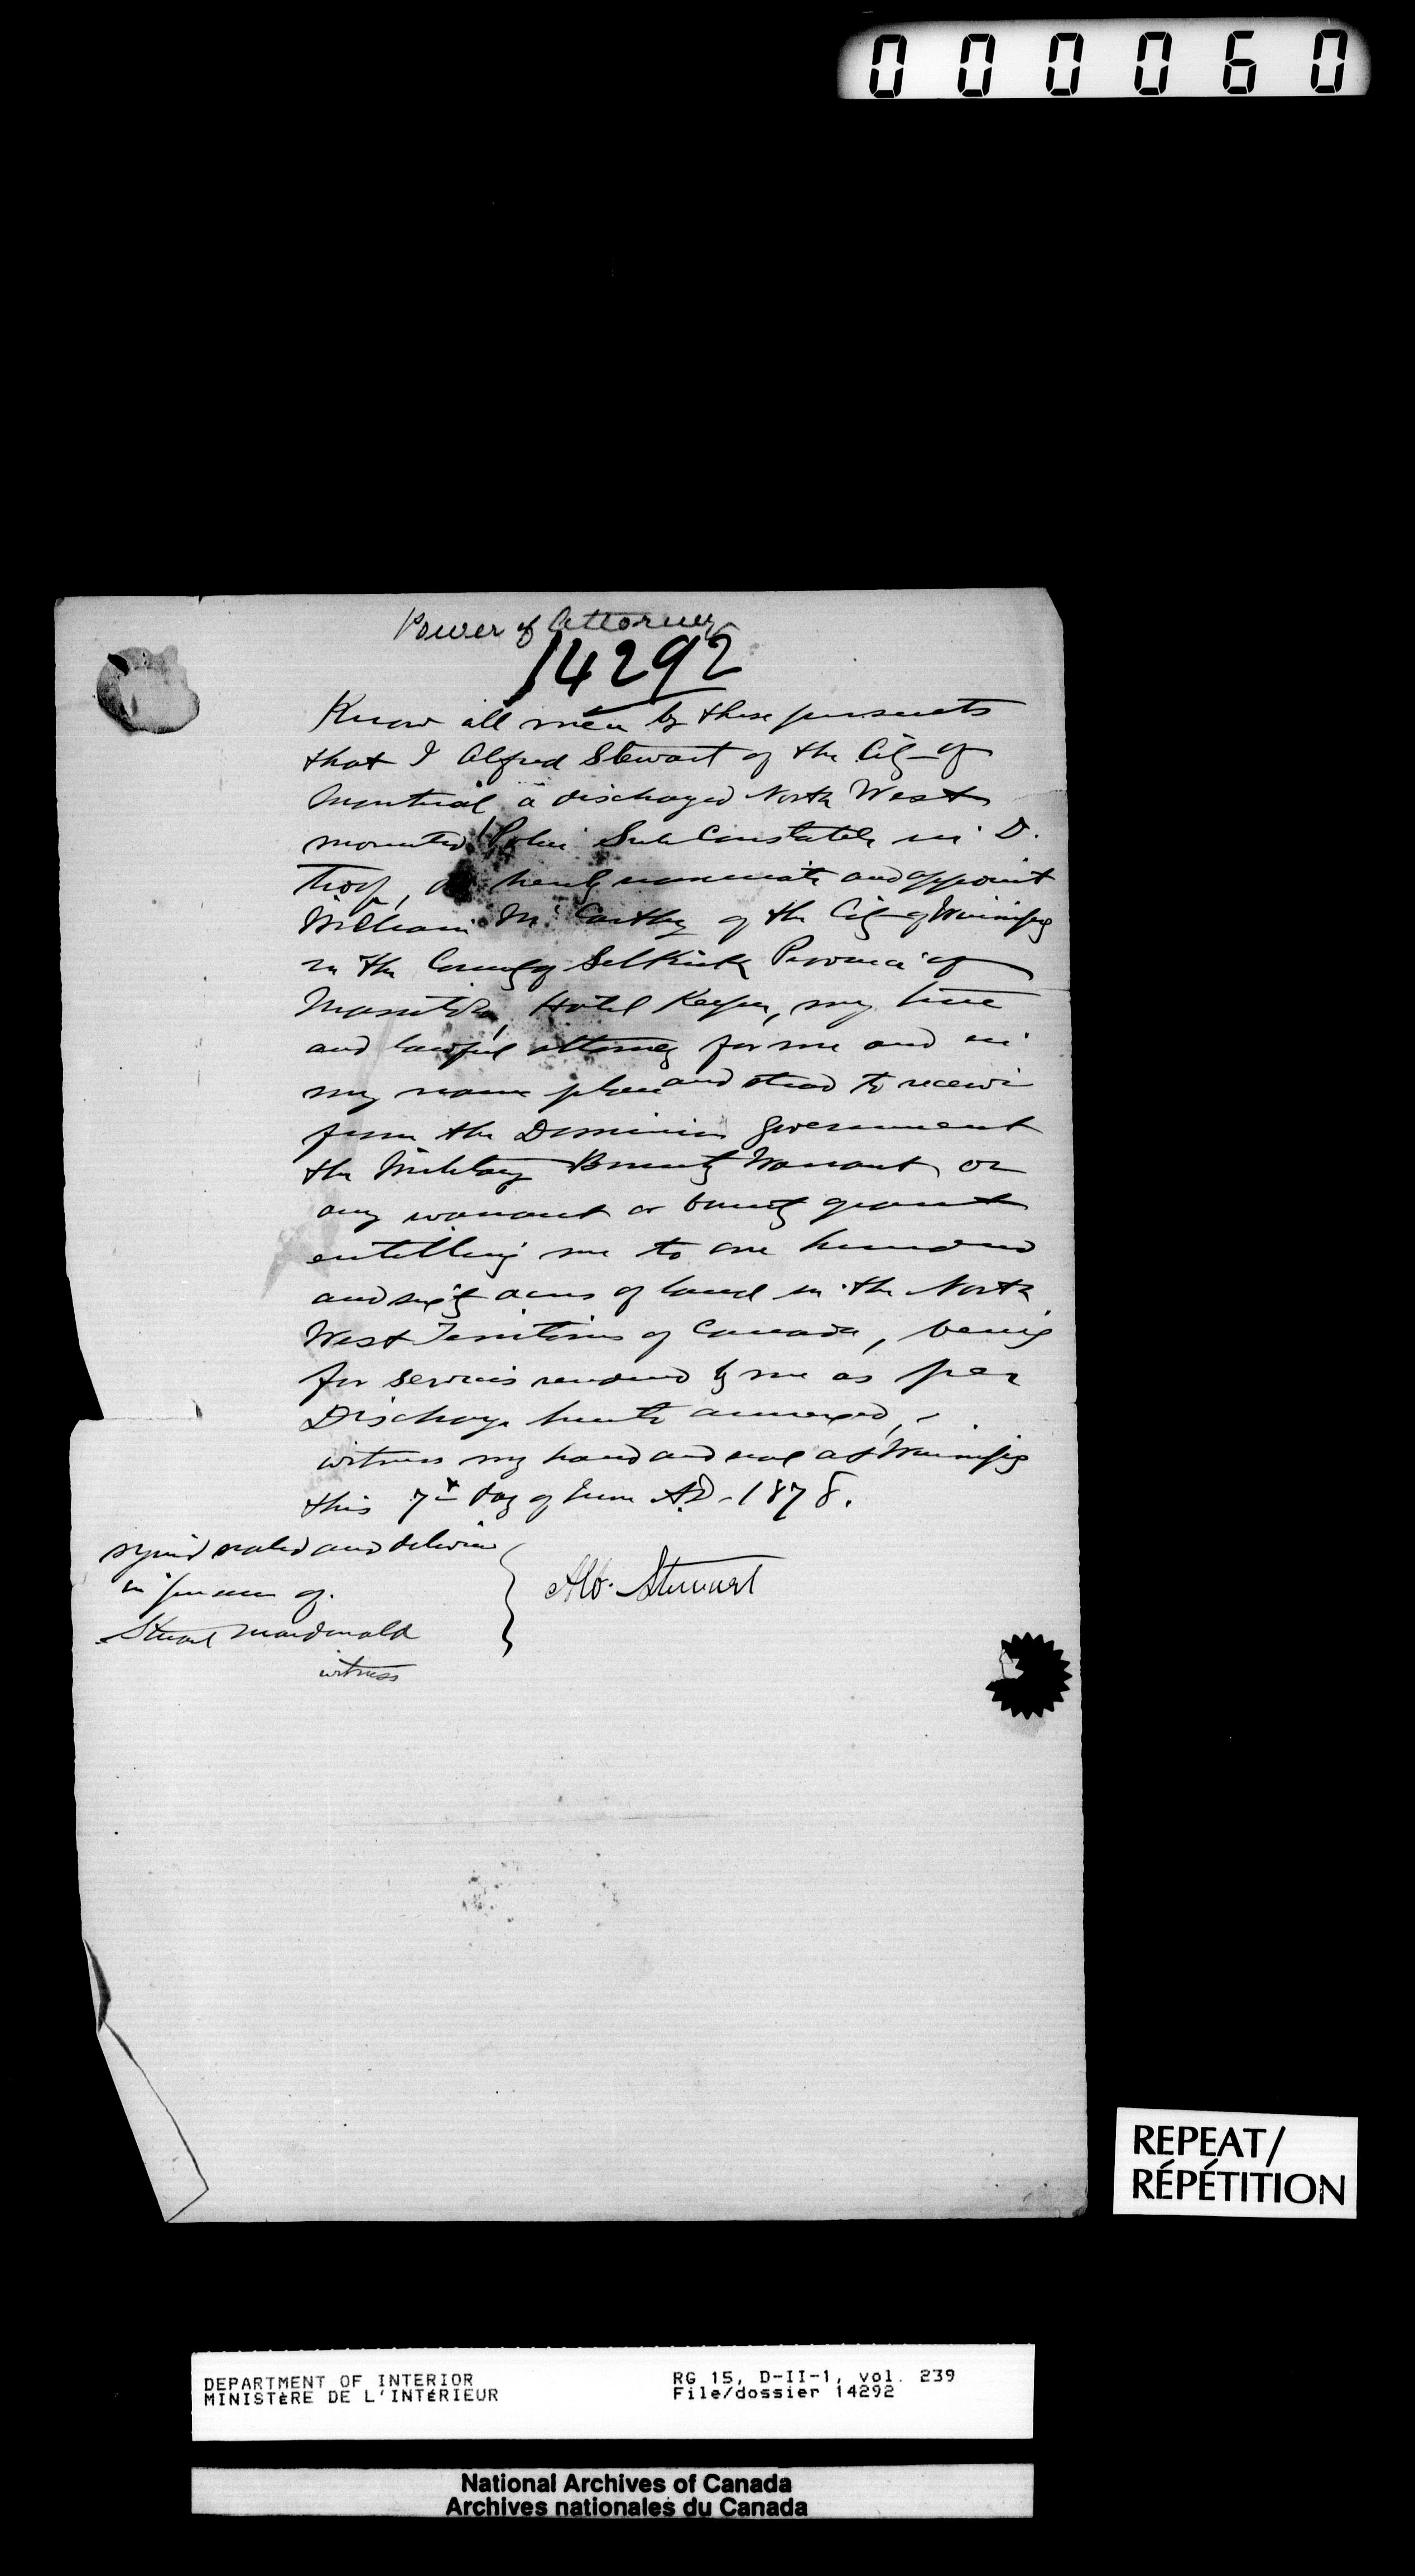 000060
Power of Attorney
14292
Know all men by these presents
that I Alfred Stewart of the City of
Montreal a discharged North West
mounted Police Sub Constable in D.
Troop, do hereby nominate and appoint
William McCarthy of the City of Winnipeg
in the County of Selkirk Province of
Manitoba, Hotel Keeper, my true
and lawful attorney for me and in
my name place and stead to receive
from the Dominion Government
the Military Bounty Warrant or
any warrant or bounty grant
entitling me to one hundred
and sixty acres of land in the North
West Territories of Canada, being
for services rendered by me as per
Discharge hereto annexed,
witness my hand and seal at Winnipeg
this 7th day of June A.D. 1878.
signed sealed and delivered
in presence of.
Stuart Macdonald
witness
Stewart
REPEAT/
RÉPÉTITION
DEPARTMENT OF INTERIOR
MINISTÈRE DE L'INTÉRIEUR
RG 15, D-II-1, vol. 239
File/dossier 14292
National Archives of Canada
Archives nationales du Canada